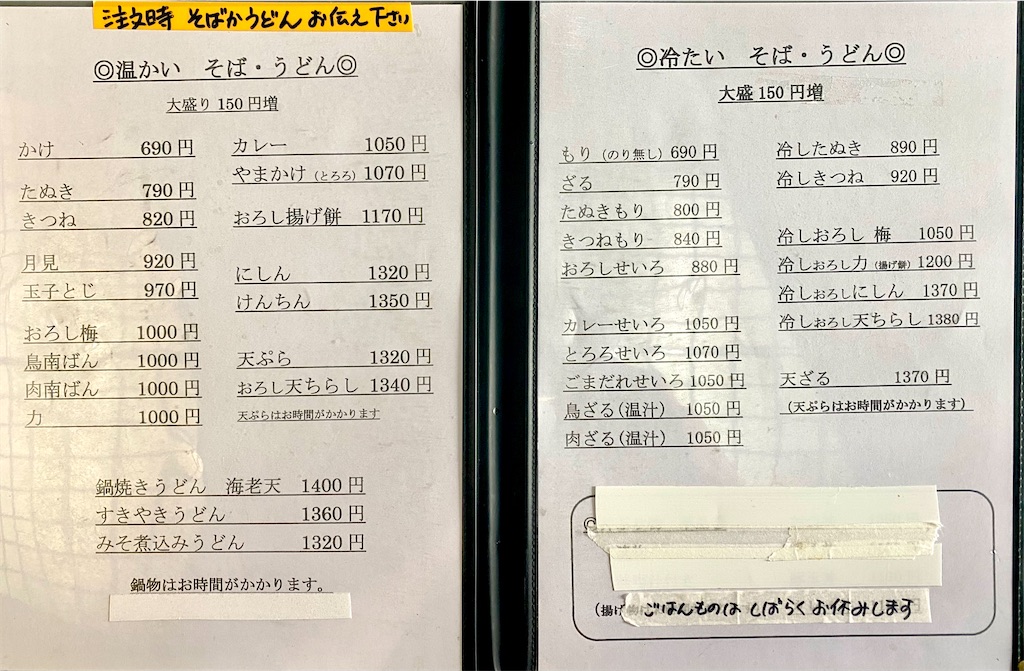 注文時 そばかうどん お伝え下さい
◎温かい そば・うどん◎
大盛り150円増
かけ 690円
たぬき 790円
きつね 820円
月見 920円
玉子とじ 970円
おろし梅 1000円
鳥南ばん 1000円
肉南ばん 1000円
力 1000円
カレー 1050円
やまかけ(とろろ) 1070円
おろし揚げ餅 1170円
にしん 1320円
けんちん 1350円
天ぷら 1320円
おろし天ちらし 1340円
天ぷらはお時間がかかります
鍋焼きうどん 海老天 1400円
すきやきうどん 1360円
みそ煮込みうどん 1320円
鍋物はお時間がかかります。
◎冷たい そば・うどん◎
大盛150円増
もり(のり無し) 690円
ざる 790円
たぬきもり 800円
きつねもり 840円
おろしせいろ 880円
カレーせいろ 1050円
とろろせいろ 1070円
ごまだれせいろ 1050円
鳥ざる(温汁) 1050円
肉ざる(温汁) 1050円
冷したぬき 890円
冷しきつね 920円
冷しおろし 梅 1050円
冷しおろし力(揚げ餅) 1200円
冷しおろしにしん 1370円
冷しおろし天ちらし 1380円
天ざる 1370円
(天ぷらはお時間がかかります)
(揚げ
ごはんものは しばらく お休みします